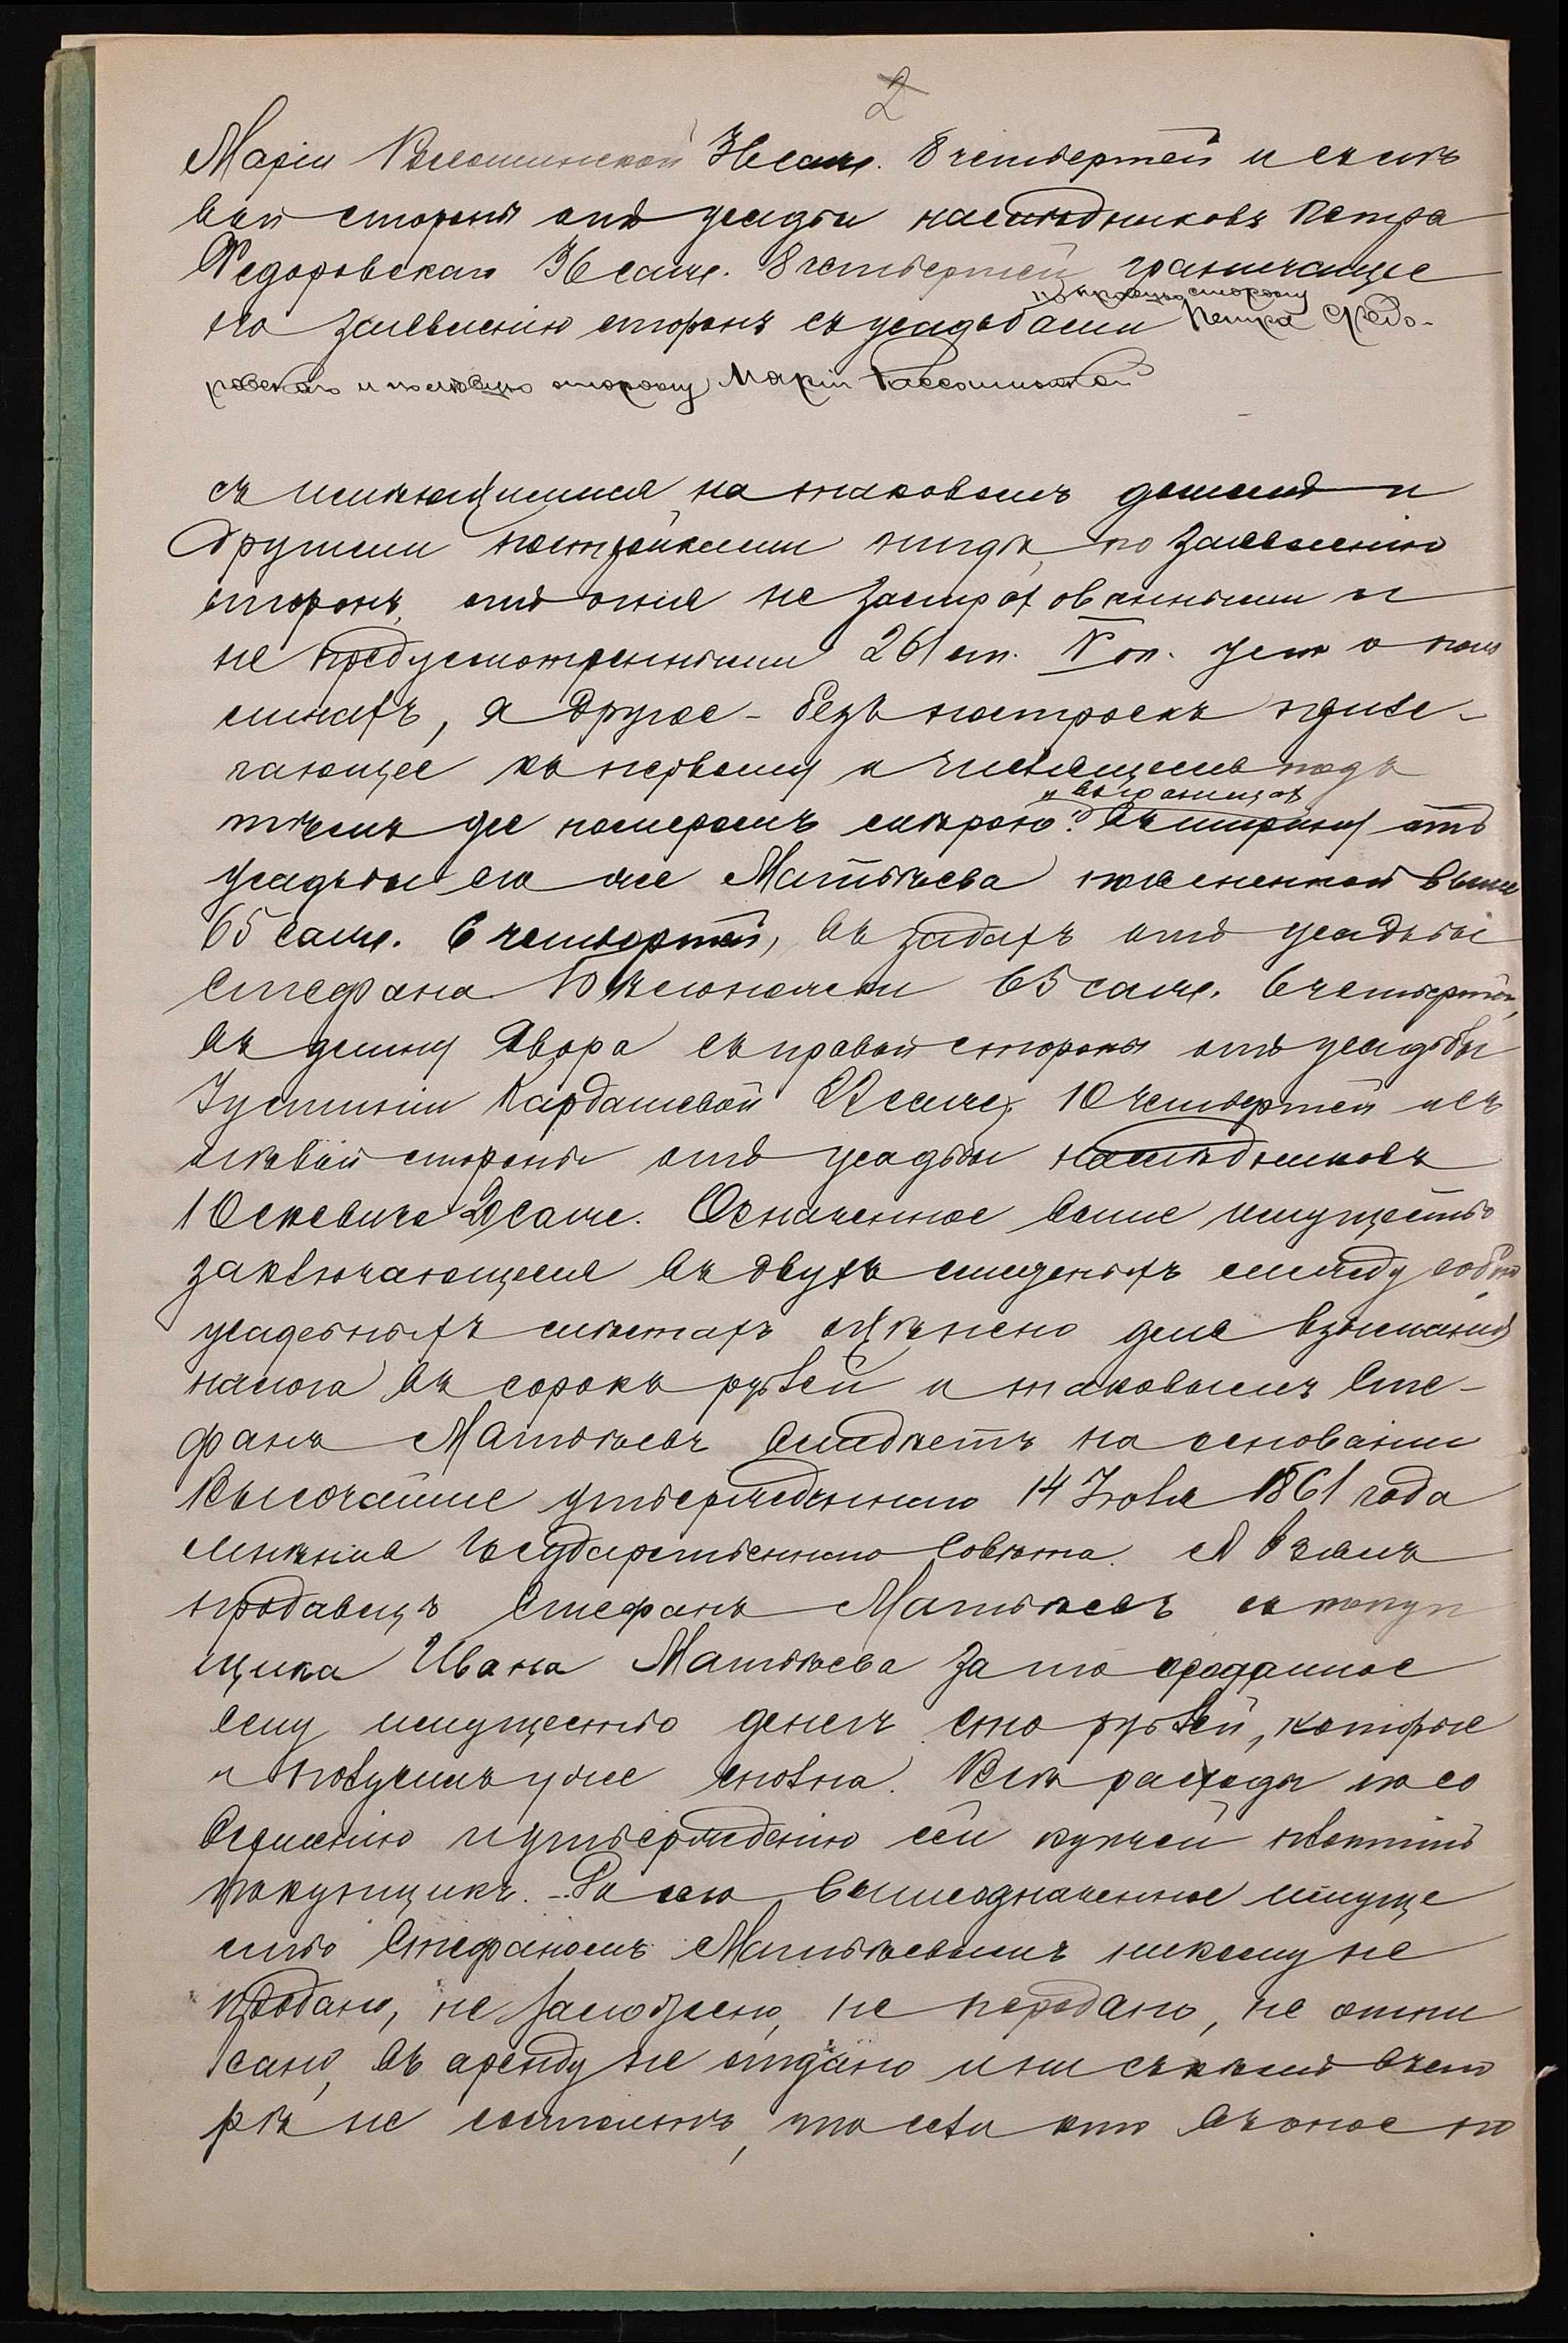 2
Маріи 36 саж. 8 четвертей и съ лѣ
вой стороны отъ усадьбы наслѣдниковъ Петра
Федоровскаго 36 саж. 8 четвертей граничащее
по правую сторону
по заявленію сторонъ съ усадьбами Петра Федо-
ровскаго и по лѣвую сторону Маріи
съ имѣющимися на таковомъ домомъ и
другими постройками по заявленію
сторонъ, отъ огня не застрахованными и
не предусмотрѣнными 261 ст. V т. уст о пош
линахъ, а другое - безъ построекъ приле-
гающее къ первому и числящееся подъ
въ границахъ
тѣмъ же номеромъ мѣрою: въ ширину отъ
усадьбы его же Матвѣева поясненной выше
65 саж. 6 четвертей, въ задахъ отъ усадьбы
Стефана 65 саж. 6 четвертей,
въ длину двора съ правой стороны отъ усадьбы
Іустиніи Кардашевой саж. 10 четвертей и съ
лѣвой стороны отъ усадьбы наслѣдниковъ
Юскевича саж. Означенное выше имущество
заключающееся въ двухъ смежныхъ между собою
усадебныхъ мѣстахъ оцѣнено для взысканія
налога въ сорокъ рублей и таковымъ Сте-
фанъ Матвѣевъ владѣетъ на основаніи
Высочайше утвержденнаго 14 Іюля 1861 года
мнѣнія Государственнаго Совѣта. А взялъ
продавецъ Стефанъ Матвѣевъ съ покуп
щика Ивана Матвѣева за то проданное
ему имущество денегъ сто рублей, которые
и получилъ уже сполна. Всѣ расходы по со
вершенію и утвержденію сей купчей платитъ
покупщикъ. - До сего вышеозначенное имуще
ство Стефаномъ Матвѣевымъ никому не
продано, не заложено, не передано, не отпи
сано, въ аренду не отдано и ни съ кѣмъ въ спо
рѣ не состоитъ, что если кто въ оное по